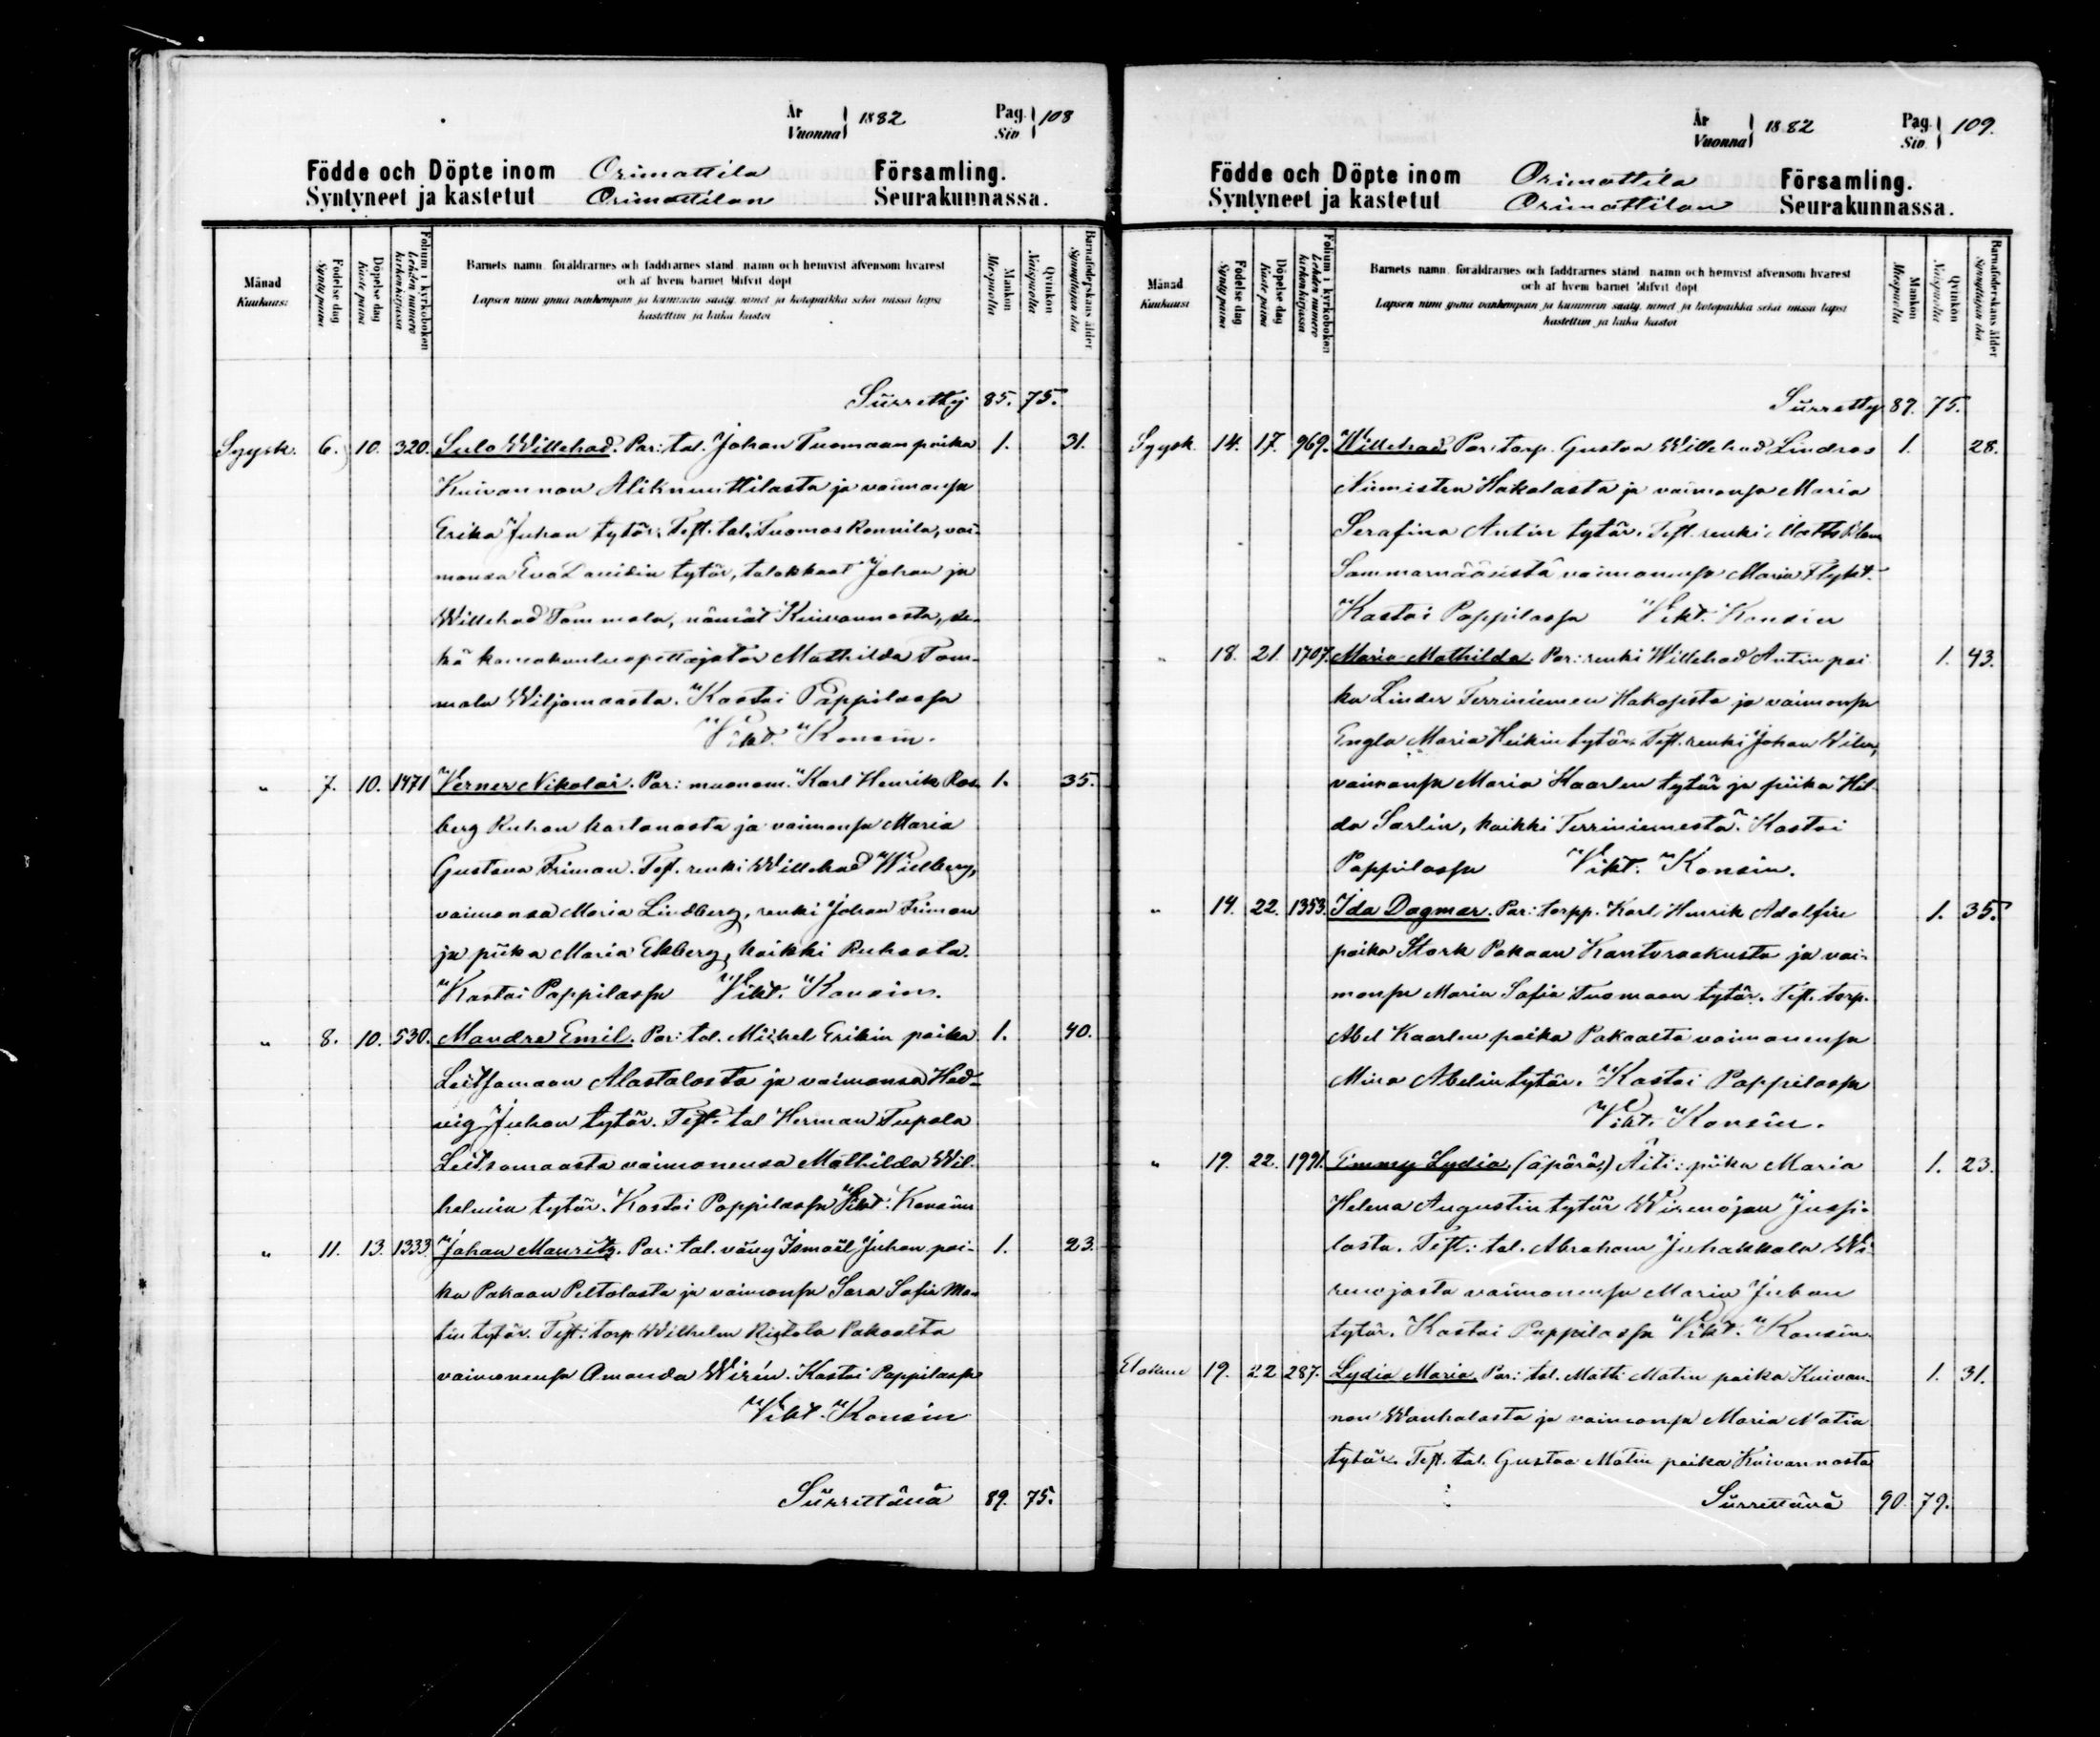 År
Vuonna 1882 Pag. Siv. 108
Födde och Döpte inom Orimattila Församling.
Syntyneet ja kastetut Orimattilan Seurakunnassa.
Månad
Kuukausi
Födelse dag
Syntypäivä
Döpelse dag
Kastepäivä
Folium i kyrkoboken
Lehden numero kirkonkirjassa
Barnets namn, föräldrarnes och faddrarnes stånd, namn och hemvist äfvensom hvarest
och af hvem barnet blifvit döpt
Lapsen nimi ynnä vanhempain ja kummein sääty, nimet ja kotopaikka sekä missä lapsi
kastettiin ja kuka kastoi
Mankön
Miespuolia
Qvinkön
Naispuolia
Barnaföderskans ålder
Synnyttäjän ikä
Siirretty 85. 75.
Syysk. 6. 10. 320. Sulo Willehad. Par: tal. Johan Tuomaanpoika 1. 31.
Kuivannon Aliknuuttilasta ja vaimonsa
Erika Juhan tytär. Test. tal. Tuomas Konnila, vai-
monsa Eva Davidin tytär, talokkaat Johan ja
Willehad Tommola, nämät Kuivannosta, se-
kä kansakouluopettajatar Mathilda Tom-
mola Wiljamaasta. Kastoi Pappilassa
Vikt. Konsin.
" 7. 10. 1471 Verner Nikolai. Par: muonam. Karl Henrik Ros- 1. 35.
berg Ruhan kartanosta ja vaimonsa Maria
Gustava Friman. Test. renki Willehad Widberg,
vaimonsa Maria Lindberg, renki Johan Friman
ja piika Maria Ekberg, kaikki Ruhasta.
Kastoi Pappilassa Vikt. Konsin.
" 8. 10. 530. Mandre Emil. Par: tal. Mickel Erikin poika 1. 40.
Leitsamaan Alastalosta ja vaimonsa Hed-
vig Juhan tytär. Test. tal Herman Tupala
Leitsamaasta vaimonensa Mathilda Wil-
helmin tytär. Kastoi Pappilassa Vikt. Konsin
" 11. 13. 1333. Johan Mauritz. Par: tal. vävy Ismaël Juhan poi- 1. 23.
ka Pakaan Peltolasta ja vaimonsa Sara Sofia Ma-
tin tytär. Test: torp Wilhelm Ristola Pakaalta
vaimonensa Amanda Wirén. Kastoi Pappilassa
Vikt. Konsin
Siirrettävä 89. 75.
År
Vuonna 1882 Pag. Siv. 109.
Födde och Döpte inom Orimattila Församling.
Syntyneet ja kastetut Orimattilan Seurakunnassa.
Månad
Kuukausi
Födelse dag
Syntypäivä
Döpelse dag
Kastepäivä
Folium i kyrkoboken
Lehden numero kirkonkirjassa
Barnets namn, föräldrarnes och faddrarnes stånd, namn och hemvist äfvensom hvarest
och af hvem barnet blifvit döpt
Lapsen nimi ynnä vanhempain ja kummein sääty, nimet ja kotopaikka sekä missä lapsi
kastettiin ja kuka kastoi
Mankön
Miespuolia
Qvinkön
Naispuolia
Barnaföderskans ålder
Synnyttäjän ikä
Siirretty 89. 75.
Syysk. 14. 17. 969. Willehad. Par: torp. Gustaa Willehad Lindros 1. 28.
Niinisten Hakalasta ja vaimonsa Maria
Serafina Antin tytär. Test. renki Matts
Sammarnääsistä vaimonensa Maria Flykt.
Kastoi Pappilassa Vikt. Konsin
" 18. 21. 1707. Maria Mathilda. Par: renki Willehad Antin poi- 1. 43.
ka Linder Terriniemen Hakosta ja vaimonsa
Engla Maria Heikin tytär. Test. renki Johan Wilen,
vaimonsa Maria Kaarlen tytär ja piika Hil-
da Sarlin, kaikki Terriniemestä. Kastoi
Pappilassa Vikt. Konsin.
" 14. 22. 1353. Ida Dagmar. Par: torpp. Karl Henrik Adolfin 1. 35.
poika Stark Pakaan Kantoraakusta ja vai-
monsa Maria Sofia Tuomaan tytär. Test. torp.
Abel Kaarlen poika Pakaalta vaimonensa
Mina Abelin tytär. Kastoi Pappilassa
Vikt. Konsin.
" 19. 22. 1991. Emmy Lydia. (äpärä,) Äiti: piika Maria 1. 23.
Helena Augustin tytär Wirenojan Jussi-
lasta. Test: tal. Abraham Juhakkala Wi-
renojasta vaimonensa Maria Juhan
tytär. Kastoi Pappilassa Vikt. Konsin.
Elokuu 19. 22 287. Lydia Maria. Par: tal. Matti Matin poika Kuivan- 1. 31.
non Wanhalasta ja vaimonsa Maria Matin
tytär. Test. tal. Gustaa Matin poika Kuivannosta
Siirrettävä 90. 79.